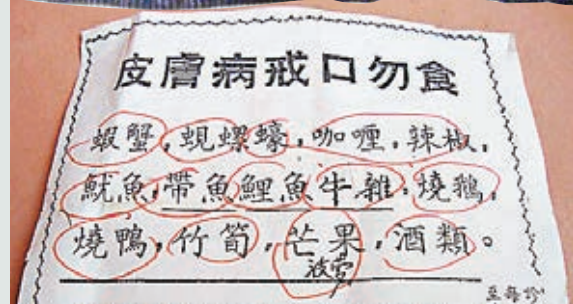 皮膚病戒口勿食
蝦蟹,蜆螺蠔,咖喱,辣椒,
魷魚,帶魚鯉魚牛雜,燒鵝,
燒鴨,竹筍,芒果,酒類。